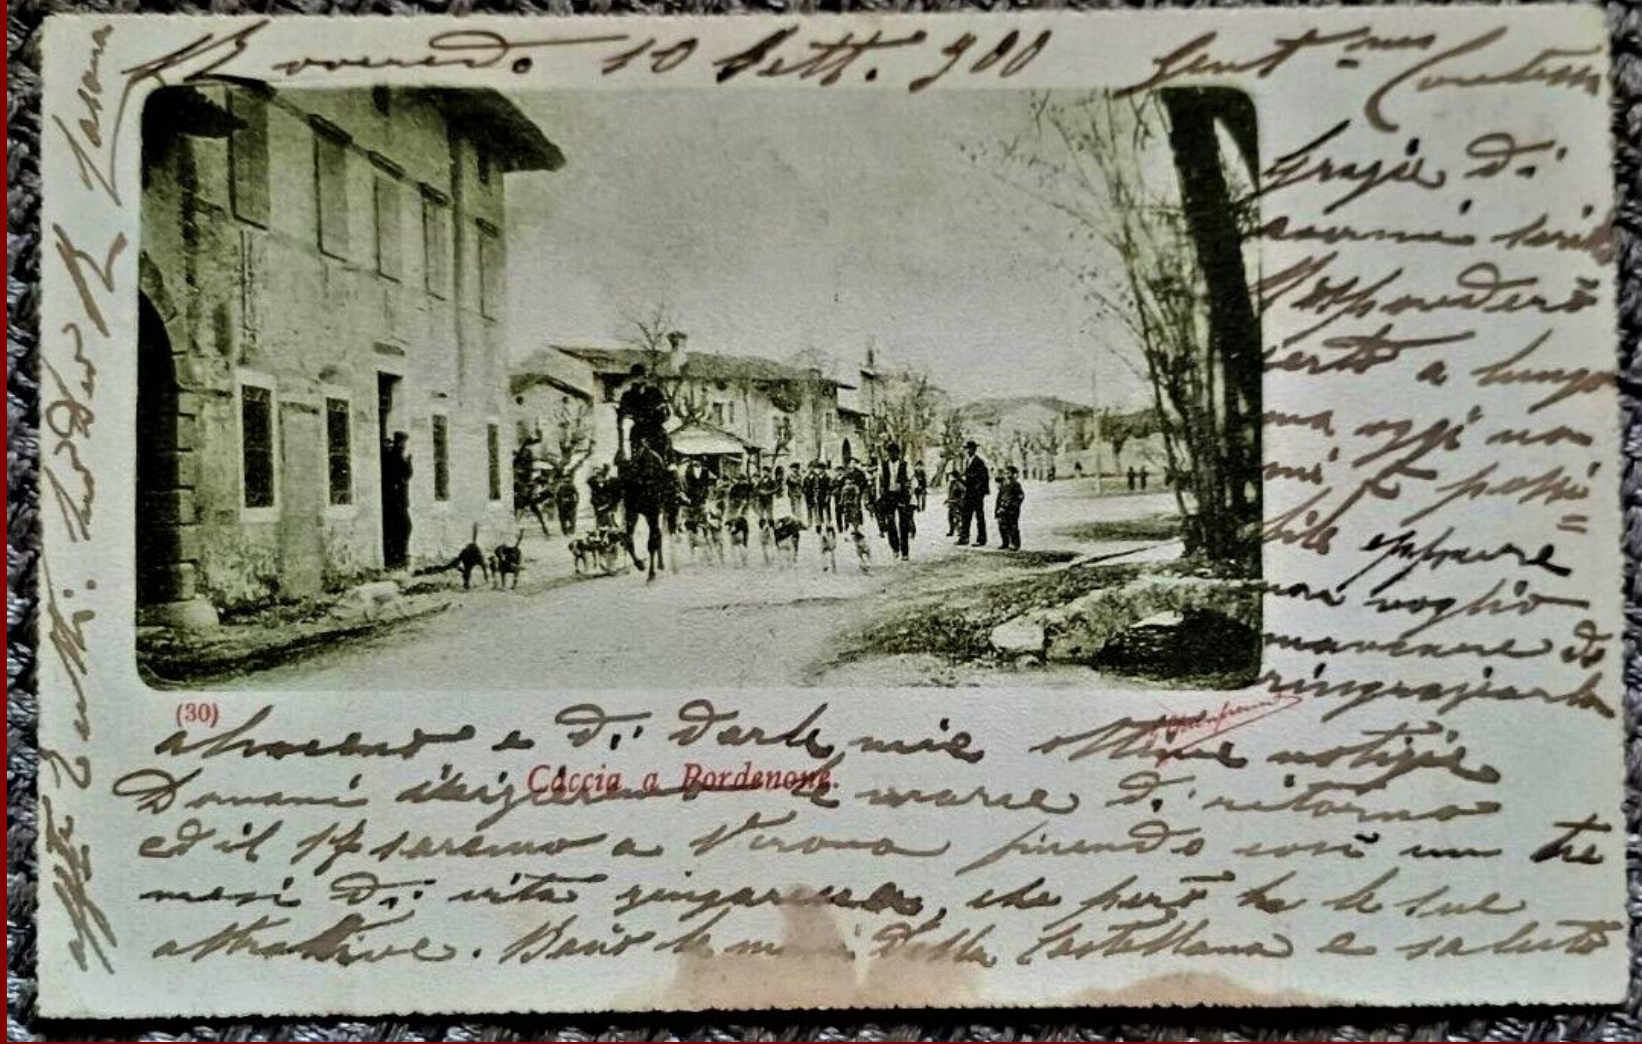 Roveredo 10 Sett. 900 Gent.ma Contessa
Grazie di
avermi scritto
Risponderò
certo a lungo
ma oggi non
mi è possi=
bile eppure
non voglio
mancare di
ringraziarla
(30)
almeno e di darle mie ottime notizie
Caccia a Pordenone.
Domani le marce di ritorno
ed il 17 saremo a Verona finendo così un tre
mesi di vita, che però ha le sue
attrattive. Bacio le mani della Castellana e saluto
aff.te tutti.